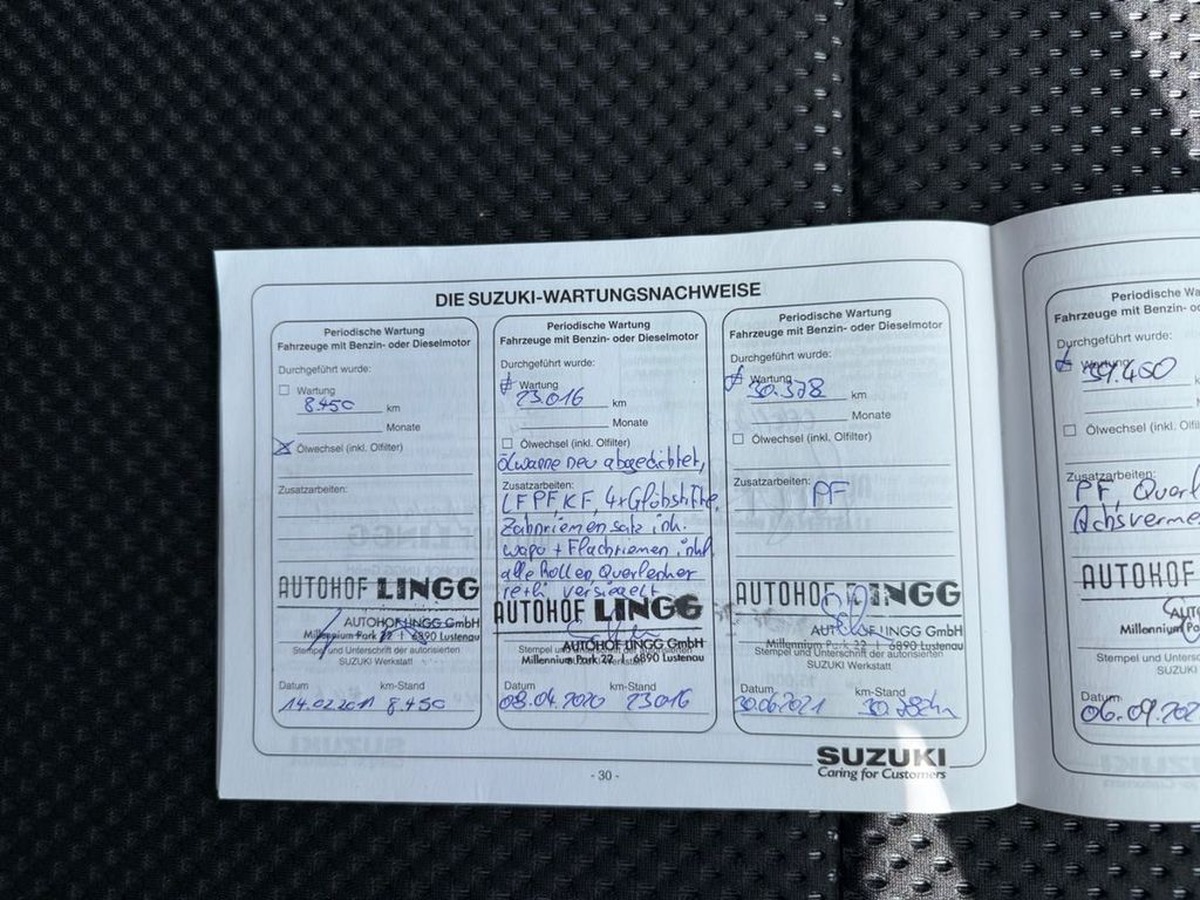 DIE SUZUKI-WARTUNGSNACHWEISE
Periodische Wartung
Fahrzeuge mit Benzin- oder Dieselmotor
Durchgeführt wurde:
Wartung
8.450 km
Monate
Ölwechsel (inkl. Ölfilter)
Zusatzarbeiten:
AUTOHOF LINGG
AUTOHOF LINGG GmbH
Millennium Park 22 | 6890 Lustenau
Stempel und Unterschrift der autorisierten
SUZUKI Werkstatt
Datum km-Stand
14.02.2011 8.450
Periodische Wartung
Fahrzeuge mit Benzin- oder Dieselmotor
Durchgeführt wurde:
Wartung
23.016 km
Monate
Ölwechsel (inkl. Ölfilter)
Ölwanne neu abgedichtet,
Zusatzarbeiten:
LF PF, KF, 4x Glühstifte,
Zahnriemensatz inkl.
Wapu + Flachriemen inkl.
alle Rollen, Querlenker
versiegelt
AUTOHOF LINGG
AUTOHOF LINGG GmbH
Millennium Park 22 6890 Lustenau
Datum km-Stand
08.04.2020 23016
Periodische Wartung
Fahrzeuge mit Benzin- oder Dieselmotor
Durchgeführt wurde:
Wartung
30.378 km
Monate
Ölwechsel (inkl. Ölfilter)
Zusatzarbeiten: PF
AUTOHOF LINGG
AUTOHOF LINGG GmbH
Millennium Park 22 | 6890 Lustenau
Stempel und Unterschrift der autorisierten
SUZUKI Werkstatt
Datum km-Stand
30.06.2021
- 30 -
SUZUKI
Caring for Customers
Periodische Wa
Fahrzeuge mit Benzin- o
Durchgeführt wurde:
Wartung
Ölwechsel (inkl. Ö
Zusatzarbeiten:
PF, Querl
Achsverme
AUTOHOF
AUT
Millennium Pa
Stempel und Unters
SUZUKI
Datum
06.09.202